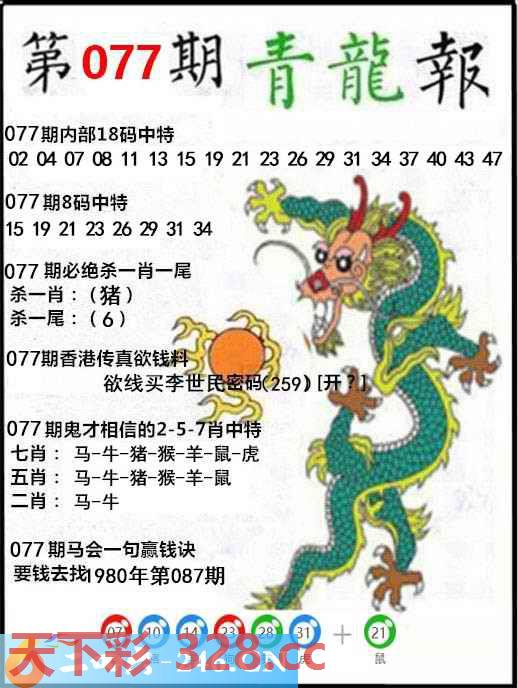 第077期青龍報
077期内部18码中特
02 04 07 08 11 13 15 19 21 23 26 29 31 34 37 40 43 47
077期8码中特
15 19 21 23 26 29 31 34
077期必绝杀一肖一尾
杀一肖：（猪）
杀一尾：（6）
077期香港传真欲钱料
欲线买李世民密码(259)[开?]
077期鬼才相信的2-5-7肖中特
七肖： 马-牛-猪-猴-羊-鼠-虎
五肖： 马-牛-猴-羊-鼠
二肖： 马-牛
077期马会一句赢钱诀
要钱去找1980年第087期
07 10 14 23 28 31 + 21
鼠
天下彩 328.cc